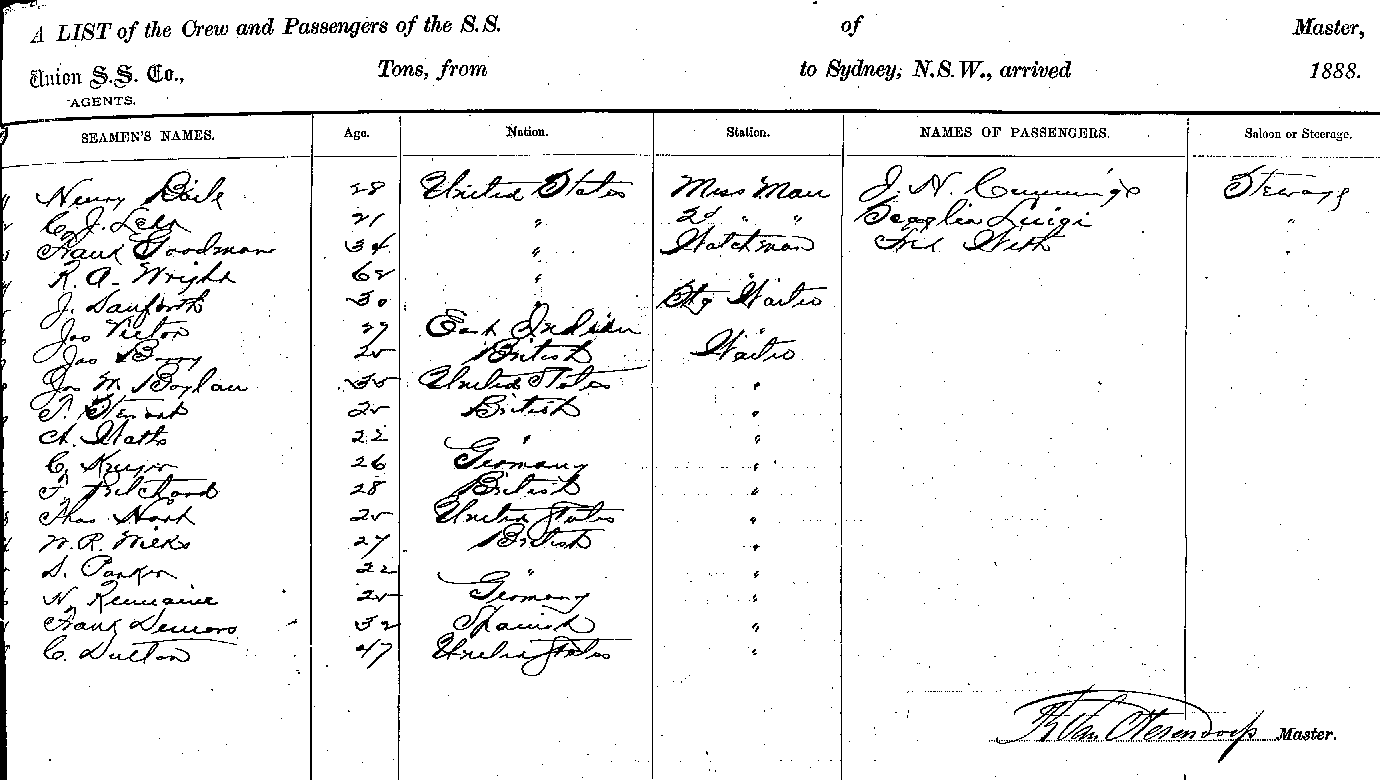 A LIST of the Crew and Passengers of the S.S. of Master,
Union S.S. Co., Tons, from to Sydney, N.S.W., arrived 1888.
AGENTS.
SEAMEN'S NAMES. Age. Nation. Station. NAMES OF PASSENGERS. Saloon or Steerage.
Henry 28 United States Mess Man J. H. Cummings Steerage
C. J. 21 " 2d " " Luigi "
Frank Goodman 34 " Watchman Fred "
R. A. Wright 62 " "
J. Danforth 30 " Waiter
Jas Victor 27 East Indian "
Jas Barry 25 British Waiter
Jas M. Boylan 35 United States "
T. Stewart 25 British "
A. Watts 22 " "
C. Kruger 26 Germany "
F. Pritchard 28 British "
Thos Hart 25 United States "
W. R. Wilks 27 British "
S. Parker 22 " "
N. 25 Germany "
Frank Demers 32 Spanish "
C. Dutton 47 United States "
Van Oterendorp Master.